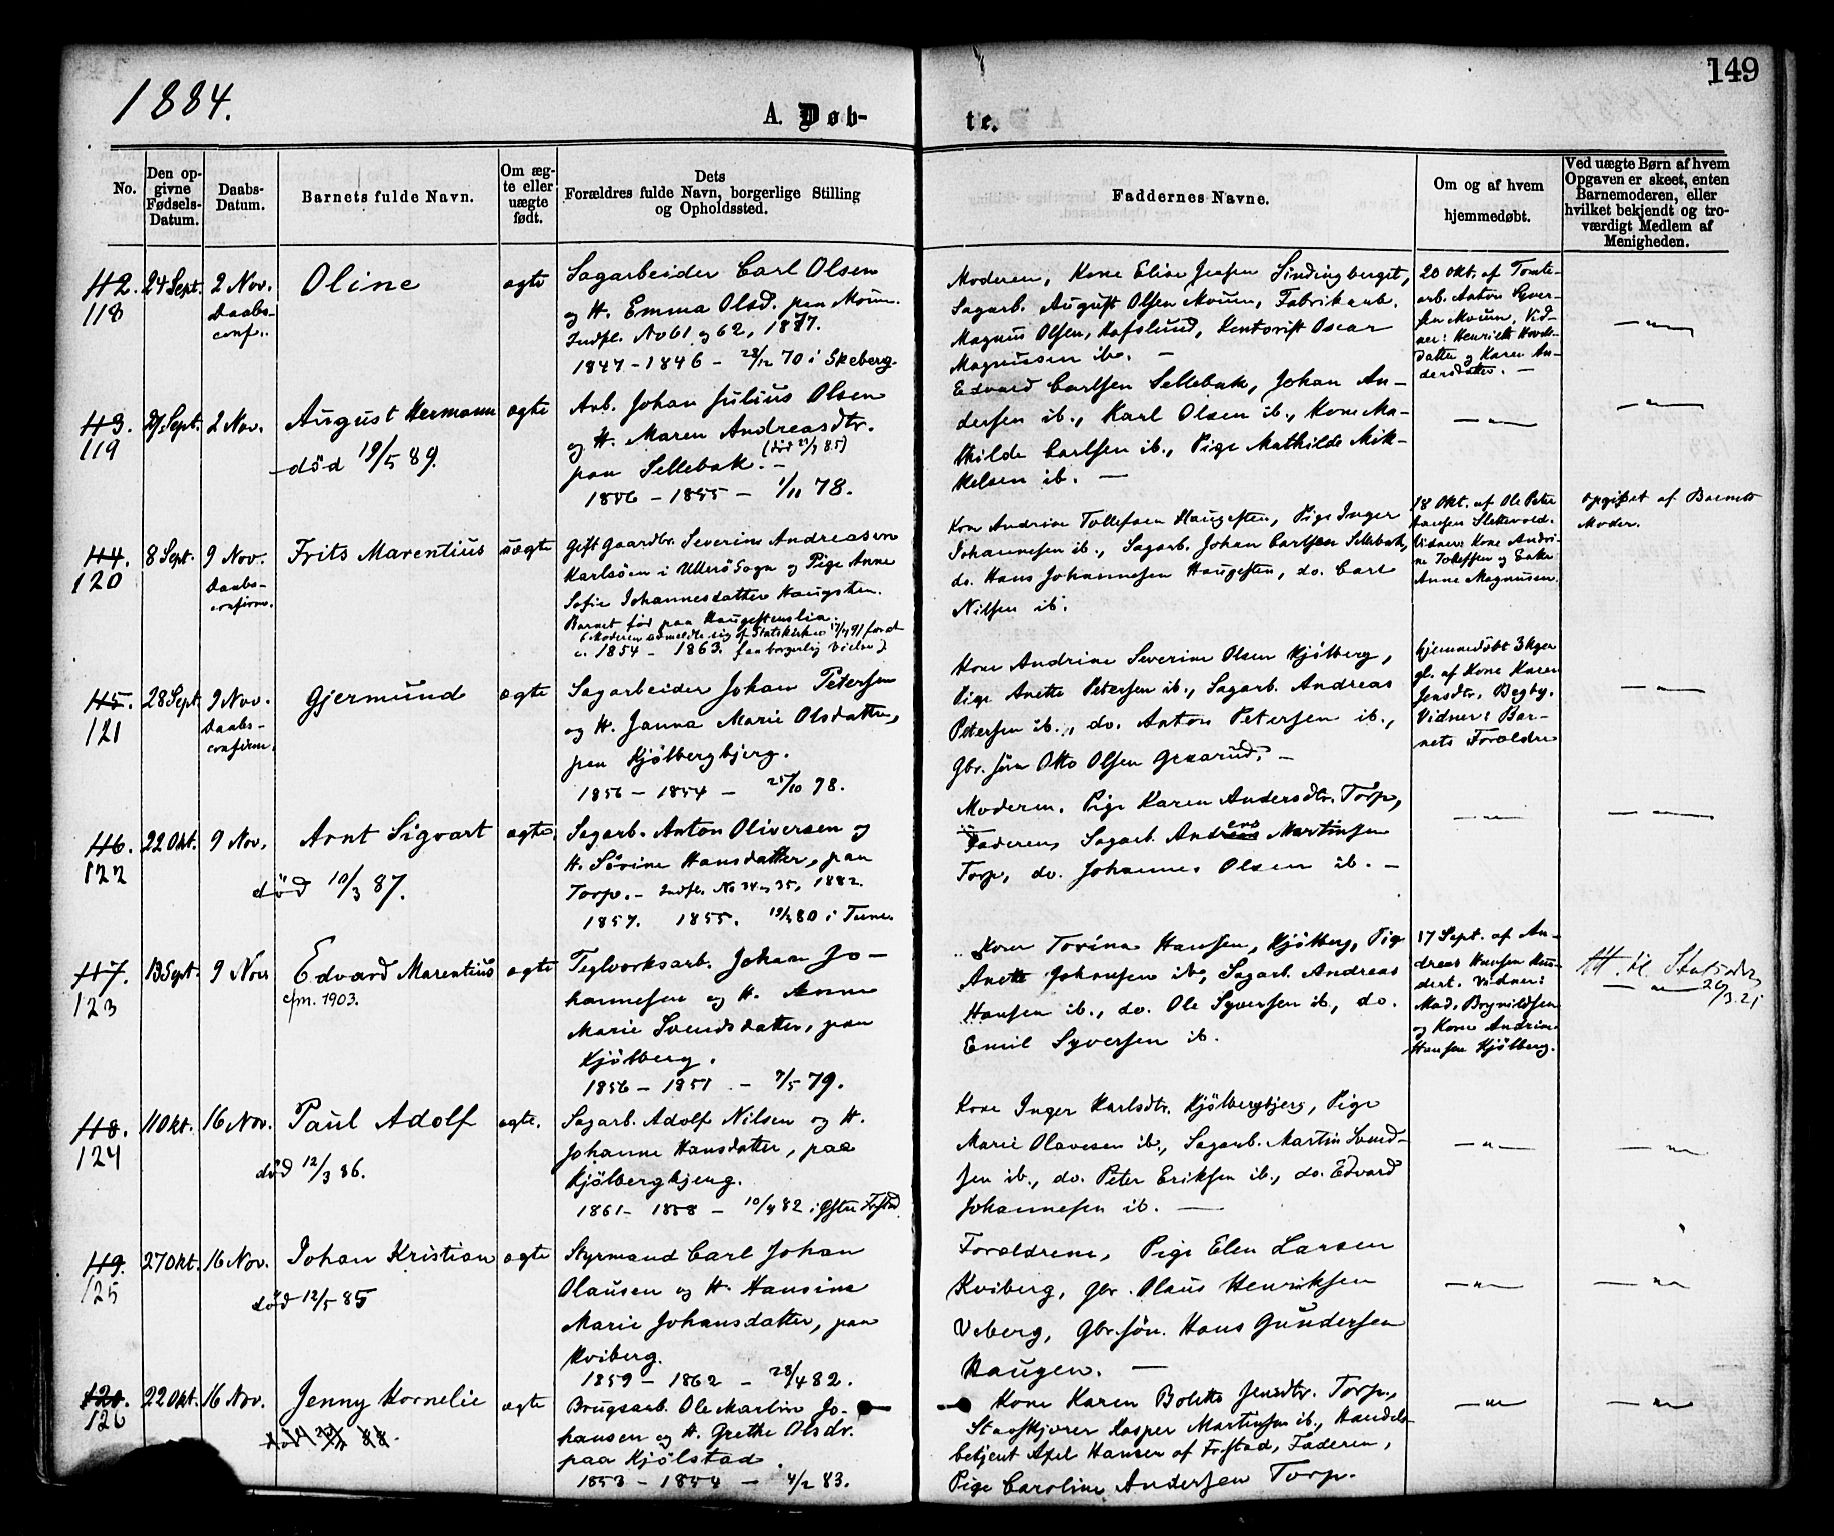 149
1884.
A. Døb-
te.
No.
Den op-
givne
Fødsels-
Datum.
Daabs-
Datum.
Barnets fulde Navn.
Om æg-
te eller
uægte
født.
Dets
Forældres fulde Navn, borgerlige Stilling
og Opholdssted.
Faddernes Navne.
Om og af hvem
hjemmedøbt.
Ved uægte Børn af hvem
Opgaven er skeet, enten
Barnemoderen, eller
hvilket bekjendt og tro-
værdigt Medlem af
Menigheden.
112.
118
24 Sept.
2 Nov.
Daabs-
conf..
Oline
ægte
Sagarbeider Carl Olsen
og H. Emma Olsd. paa Moum.
Indfl. No 61 og 62, 1877.
1847 - 1846 - 28/12 70 i Skeberg.
Moderen, Kone Elise Jensen Sindingberget,
Sagarb. August Olsen Moum, Fabrikarb.
Magnus Olsen, Hafslund, Kontorist Oscar
Magnussen ib. -
20 Okt. af Tomte-
arb. Anton Syver-
sen Moum, Vid-
ner: Henriette Hovel-
datter og Karen An-
dersdatter. -
- „ -
113.
119
27 Sept.
2 Nov.
August Hermann
död 19/5 89.
ægte
Arb. Johan Julius Olsen
og H. Maren Andreasdtr.
paa Sellebak. -
1856 - 1855 - 1/11 78.
Edvard Carlsen Sellebak, Johan An-
dersen ib., Karl Olsen ib., Kone Ma-
thilde Carlsen ib., Pige Mathilde Mik-
kelsen ib. -
- „ -
- „ -
114.
120
8 Sept.
9 Nov.
Daabs-
confirm.
Frits Marentius
uægte
Gift Gaardbr. Severin Andreasen
Karlsöen i Ullerö Sogn og Pige Anne
Sofie Johannesdatter Haugsten.
Barnet fød paa Haugestenslia.
(Moderen udmeldte sig af Statskirken 17/4 91 for at
c. 1854 - 1863. faa borgerlig Vielse)
Kone Andrine Tollefsen Haugesten, Pige Inger
Johannesen ib., Sagarb. Johan Carlsen Sellebak,
do. Hans Johannesen Haugesten, do. Carl
Nilsen ib.
18 Okt. af Ole Peter
Hansen Slettevold.
Vidner: Kone Andri-
ne Tollefsen og Enke
Anne Magnussen.
Opgivet af Barnets
Moder.
115.
121
28 Sept.
9 Nov.
Daabs-
confirm.
Gjermund
ægte
Sagarbeider Johan Petersen
og H. Janna Marie Olsdatter,
paa Kjölbergbjerg.
1856 - 1854 - 25/10 78.
Kone Andrine Severine Olsen Kjölberg,
Pige Anette Petersen ib., Sagarb. Andreas
Petersen ib., do. Anton Petersen ib.,
Gbr. sön Otto Olsen Gretarud. -
hjemmedöbt 3 Uger
gl. af Kone Karen
Jensdtr, Begby.
Vidner: Bar-
nets Forældre
- „ -
116.
122
22 Okt.
9 Nov.
Arnt Sigvart
död 10/3 87.
ægte
Sagarb. Anton Oliversen og
H. Sörine Hansdatter, paa
Torp. - Indfl. No 34 og 35, 1882.
1857. 1855. 19/ 80 i Tune.
Moderen, Pige Karen Andersdtr. Torp,
Faderen, Sagarb. Anders Martinsen
Torp, do. Johannes Olsen ib. -
- „ -
- „ -
117.
123
13 Sept.
9 Nov
Edvard Marentius
cfm. 1903.
ægte
Teglværksarb. Johan Jo-
hannesen og H. Anne
Marie Svendsdatter, paa
Kjölberg.
1856 - 1851 - 7/5 79.
Kone Torine Hansen, Kjölberg, Pige
Anette Johansen ib., Sagarb. Andreas
Hansen ib., do. Ole Syversen ib., do.
Emil Syversen ib.
17 Sept. af An-
dreas Hansen Hun-
dert. Vidner:
Mad. Brynildsen
og Kone Andrine
Hansen Kjölberg.
- „ -
118.
124
11 Okt.
16 Nov.
Paul Adolf
död 12/3 86.
ægte.
Sagarb. Adolf Nilsen og H.
Johanne Hansdatter, paa
Kjölbergbjerg.
1861 - 1858 - 10/4 82 i Østre Frstad
Kone Inger Karlsdtr. Kjölbergbjerg, Pige
Marie Olavesen ib., Sagarb. Martin Svend-
sen ib., do. Peter Eriksen ib., do. Edvard
Johannesen ib. -
- „ -
- „ -
119.
125
27 Okt.
16 Nov.
Johan Kristian
död 12/5 85
ægte
Styrmand Carl Johan
Olausen og H. Hansine
Marie Johansdatter, paa
Kviberg.
1859 - 1862 - 28/4 82.
Forældrene, Pige Elen Larsen
Kviberg, Gbr. Olaus Henriksen
Veberg, Gbr. sön. Hans Gundersen
Haugen. -
- „ -
- „ -
120.
126
22 Okt.
16 Nov.
Jenny Kornelie
ægte
Brugsarb. Ole Martin Jo-
hansen og H. Grethe Olsdr.
paa Kjölstad.
1853 - 1854 - 4/2 83.
Kone Karen Bolette Jensdtr. Torp,
Stafskjører Kasper Martinsen ib., Handels-
betjent Axel Hansen af Frstad, Faderen,
Pige Caroline Andersen Torp.
- „ -
- „ -